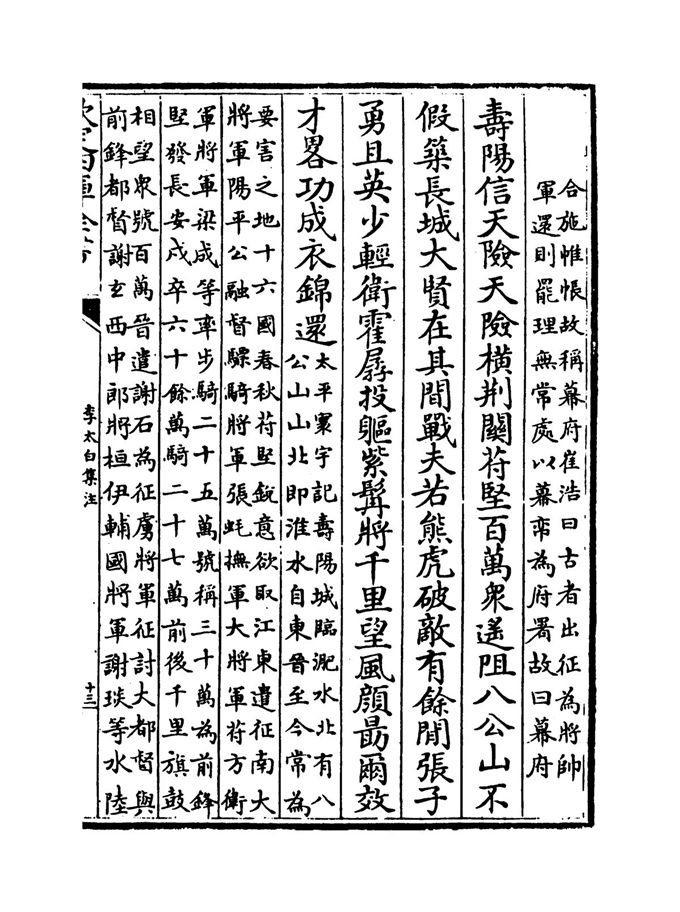 合施帷帳故稱幕府崔浩曰古者出征為將帥
軍還則罷理無常處以幕帟為府署故曰幕府
壽陽信天險天險横荆關苻堅百萬衆遙阻八公山不
假築長城大賢在其間戰夫若熊虎破敵有餘閒張子
勇且英少輕衛霍孱投軀紫髯將千里望風顔勗爾效
才畧功成衣錦還
太平寰宇記壽陽城臨淝水北有八
公山山北即淮水自東晉至今常為
要害之地十六國春秋苻堅鋭意欲取江東遣征南大
將軍陽平公融督驃騎將軍張蚝撫軍大將軍苻方衛
軍將軍梁成等率步騎二十五萬號稱三十萬為前鋒
堅發長安戍卒六十餘萬騎二十七萬前後千里旗鼓
相望衆號百萬晉遣謝石為征虜將軍征討大都督與
前鋒都督謝玄西中郎將桓伊輔國將軍謝琰等水陸
李太白集注
十三